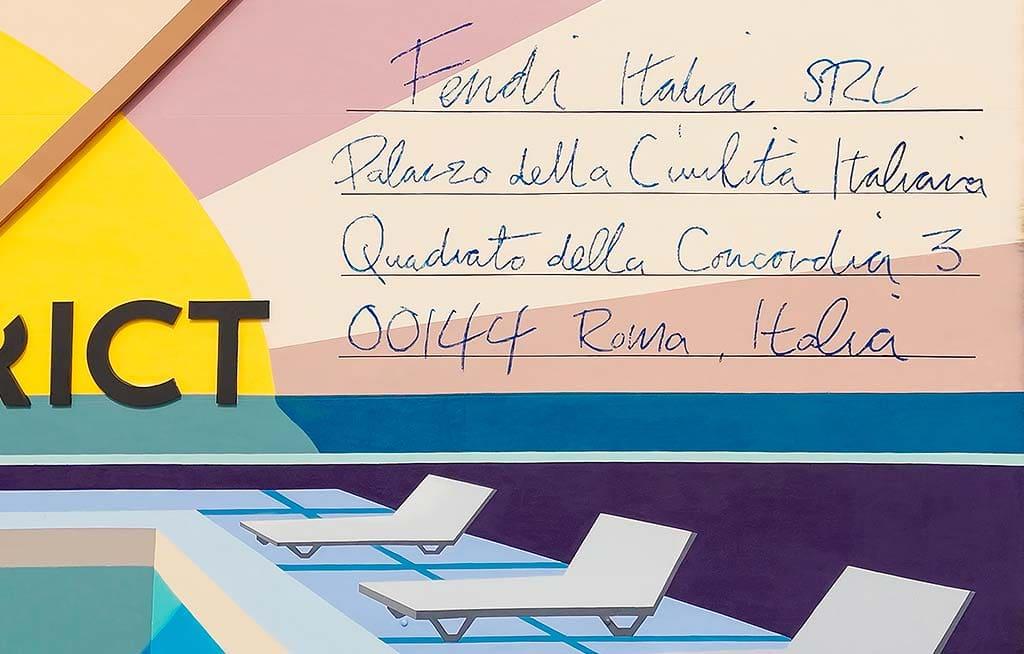 Fendi Italia SRL
Palazzo della Civiltà Italiana
Quadrato della Concordia 3
00144 Roma, Italia
RICT